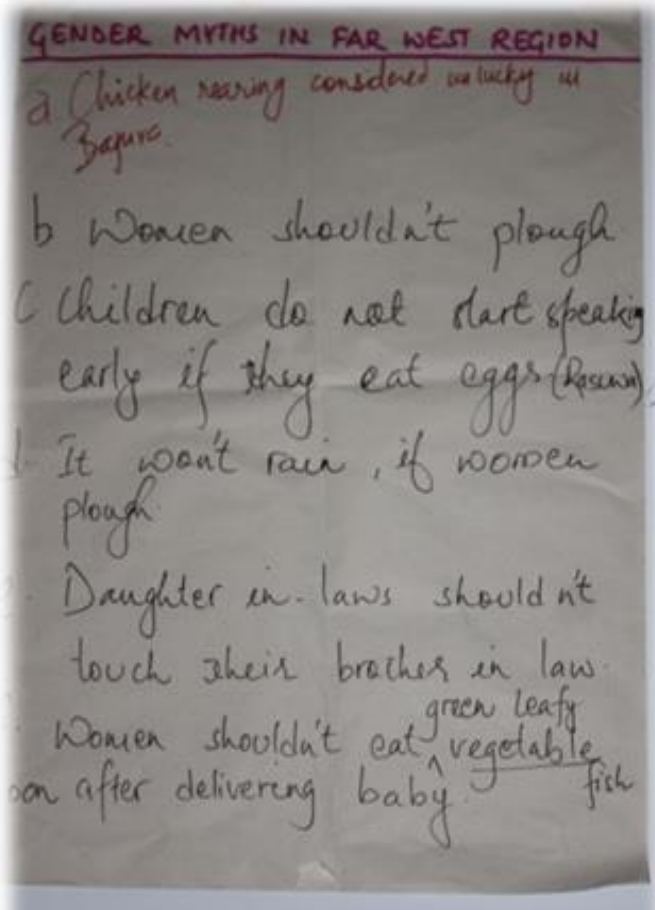 GENDER MYTHS IN FAR WEST REGION
a Chicken rearing considered unlucky in
Bajura.
b Women shouldn't plough
C Children do not start speaking
early if they eat eggs (Rasuwa)
d. It won't rain, if women
plough
Daughter in-laws shouldn't
touch their brother in law.
green leafy
Women shouldn't eat ^ vegetable
fish
soon after delivering baby.